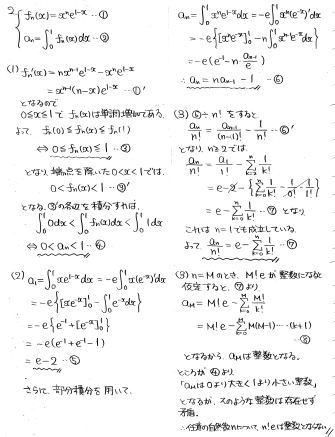 2 { fn(x)=xⁿe^{1-x} …①
an=∫₀¹ fn(x)dx …②
(1) fn'(x)=nx^{n-1}e^{1-x}-xⁿe^{1-x}
=x^{n-1}(n-x)e^{1-x} …①'
となるので
0≦x≦1で fn(x)は単調増加である.
よって fn(0)≦fn(x)≦fn(1)
⇔ 0≦fn(x)≦1 …③
となり、端点を除いた0<x<1では、
0<fn(x)<1 …③'
となる。③'の各辺を積分すれば、
∫₀¹0dx<∫₀¹fn(x)dx<∫₀¹1dx
⇔ 0<an<1 …④
(2) a₁=∫₀¹xe^{1-x}dx=-e∫₀¹x(e^{-x})'dx
=-e{[xe^{-x}]₀¹-∫₀¹e^{-x}dx}
=-e{e^{-1}+[e^{-x}]₀¹}
=-e(e^{-1}+e^{-1}-1)
=e-2 …⑤
さらに、部分積分を用いて、
an=∫₀¹xⁿe^{1-x}dx=-e∫₀¹xⁿ(e^{-x})'dx
=-e{[xⁿe^{-x}]₀¹-n∫₀¹x^{n-1}e^{-x}dx}
=-e(e^{-1}-n·a_{n-1}/e)
∴an=na_{n-1}-1 …⑥
(3) ⑥÷n!をすると
an/n!=a_{n-1}/(n-1)!-1/n! …⑥'
となり、n≧2では
an/n!=a₁/1!-Σ_{k=2}^{n}1/k!
=e-2-{Σ_{k=0}^{n}1/k!-1/0!-1/1!}
=e-Σ_{k=0}^{n}1/k! …⑦ となり
これはn=1でも成立している.
よって an/n!=e-Σ_{k=0}^{n}1/k! …⑦
(3) n=Mのとき、M!eが整数になると
仮定すると、⑦より
aM=M!e-Σ_{k=0}^{M}M!/k!
=M!e-Σ_{k=0}^{M}M(M-1)…(k+1)
…⑧
となるから aMは整数となる。
ところが④より
「aMは0より大きく1より小さい整数」
となるが、そのような整数は存在せず
矛盾。
∴任意の自然数nについて、n!eは整数とならない//